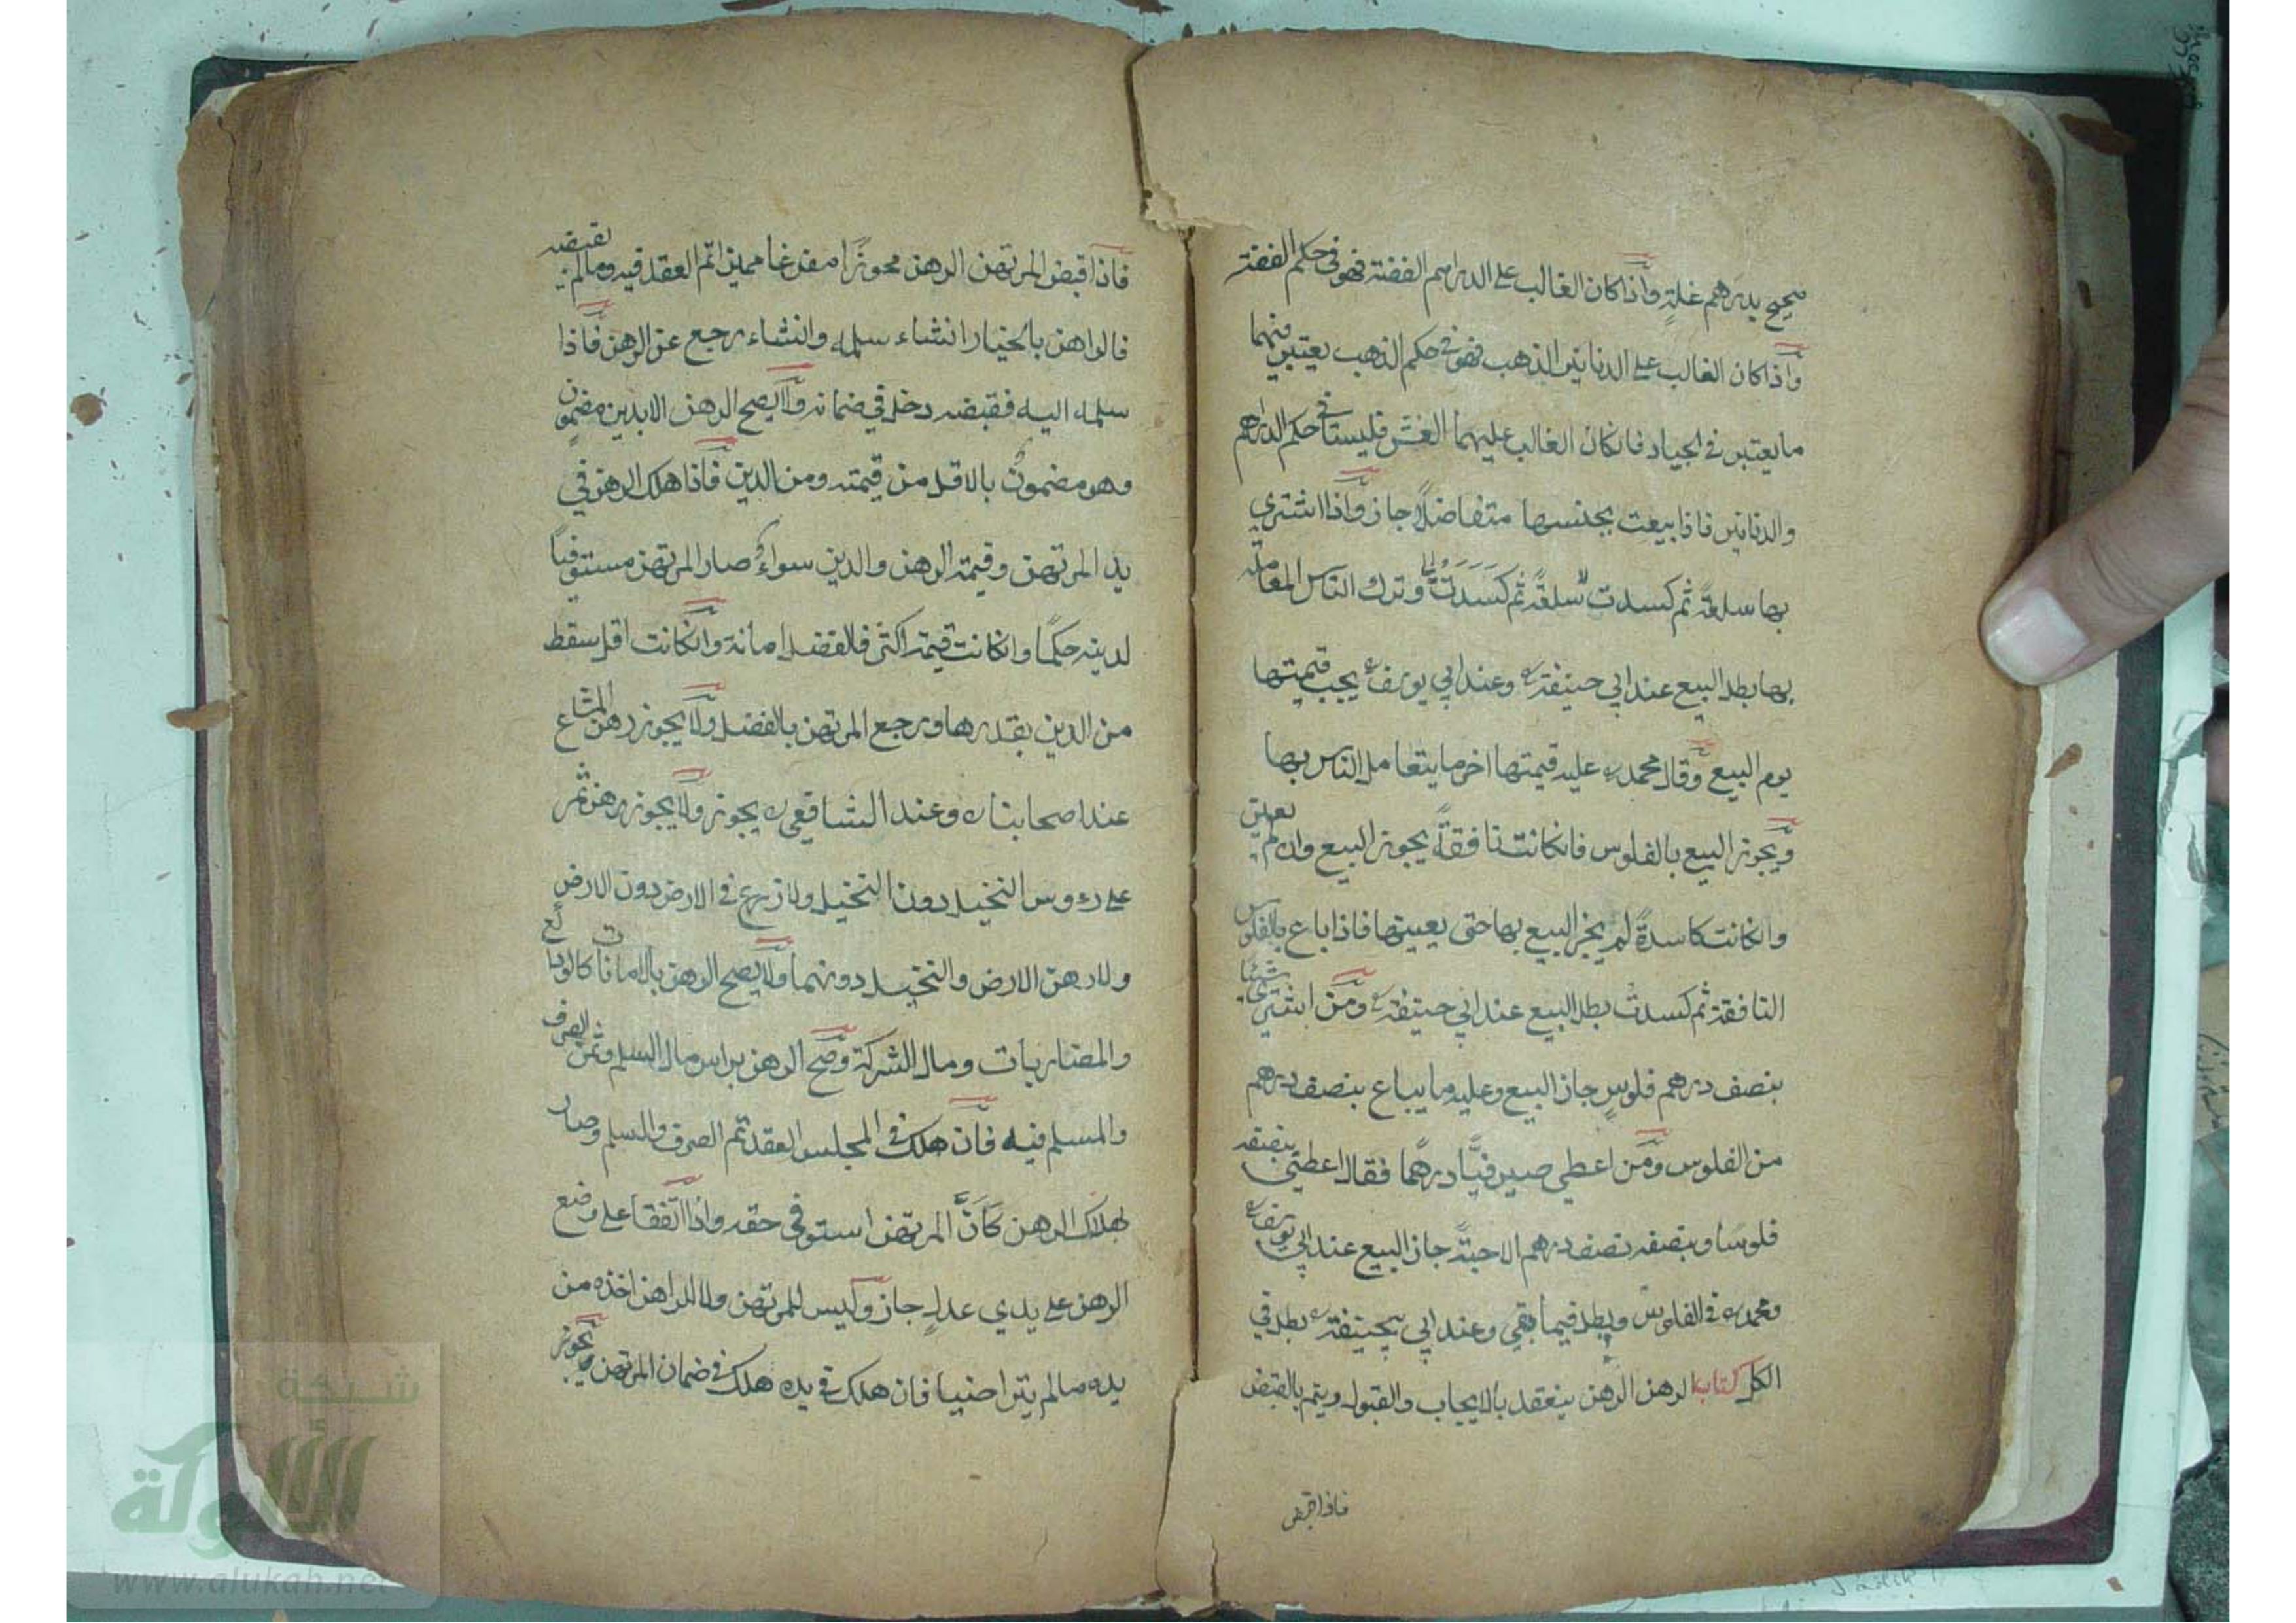 صحيح بدرهم غلة واذا كان الغالب على الدراهم الفضة فهو في حكم الفضة
واذا كان الغالب على الدنانير الذهب فهو في حكم الذهب يعتبر فيهما
ما يعتبر في الجياد فانكان الغالب عليهما الغش فليستا في حكم الدراهم
والدنانير فاذا بيعت بجنسها متفاضلا جاز واذا اشترى
بها سلعة ثم كسدت سلعة ثم كسدت وترك الناس المعاملة
بها بطل البيع عند ابي حنيفة وعند ابي يوسف يجب قيمتها
يوم البيع وقال محمد عليه قيمتها اخر ما يتعامل الناس بها
ويجوز البيع بالفلوس فانكانت نافقة يجوز البيع وان لم يعين
وانكانت كاسدة لم يجز البيع بها حتى يعينها فاذا باع بالفلوس
النافقة ثم كسدت بطل البيع عند ابي حنيفة ومن اشترى شيئا
بنصف درهم فلوس جاز البيع وعليه ما يباع بنصف درهم
من الفلوس ومن اعطي صيرفيا درهما فقال اعطني بنصفه
فلوسا وبنصفه نصف درهم الا حبة جاز البيع عند ابي يوسف
ومحمد في الفلوس وبطل فيما بقي وعند ابي حنيفة بطل في
الكل كتاب الرهن الرهن ينعقد بالايجاب والقبول ويتم بالقبض
فاذا قبض
فاذا قبض المرتهن الرهن محوزا مفرغا مميزا تم العقد فيه وما لم يقبضه
فالراهن بالخيار انشاء سلمه وانشاء رجع عن الرهن فاذا
سلمه اليه فقبضه دخل في ضمانه ولا يصح الرهن الا بدين مضمون
وهو مضمون بالاقل من قيمته ومن الدين فاذا هلك الرهن في
يد المرتهن وقيمة الرهن والدين سواء صار المرتهن مستوفيا
لدينه حكما وانكانت قيمته اكثر فالفضل امانة وانكانت اقل سقط
من الدين بقدرها ورجع المرتهن بالفضل ولا يجوز رهن المشاع
عند اصحابنا وعند الشافعي يجوز ولا يجوز رهن ثمر
على رءوس النخيل دون النخيل ولا زرع في الارض دون الارض
ولا رهن الارض والنخيل دونهما ولا يصح الرهن بالامانات كالودائع
والمضاربات ومال الشركة وصح الرهن براس مال السلم وثمن الصرف
والمسلم فيه فان هلك في المجلس العقد تم الصرف والسلم وصار
بهلاك الرهن كان المرتهن استوفى حقه واذا اتفقا على وضع
الرهن على يدي عدل جاز وليس للمرتهن ولا للراهن اخذه من
يده ما لم يتراضيا فان هلك في يده هلك في ضمان المرتهن ويجوز
شبكة
الألوكة
www.alukah.net